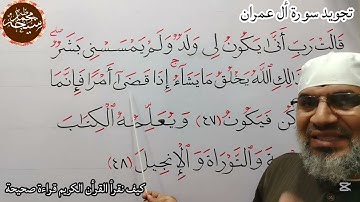 تجويد سورة أل عمران
قَالَتْ رَبِّ أَنَّىٰ يَكُونُ لِي وَلَدٌ وَلَمْ يَمْسَسْنِي بَشَرٌ
ذَٰلِكِ اللَّهُ يَخْلُقُ مَا يَشَاءُ إِذَا قَضَىٰ أَمْرًا فَإِنَّمَا
كُن فَيَكُونُ (٤٧) وَيُعَلِّمُهُ الْكِتَابَ
وَالتَّوْرَاةَ وَالْإِنجِيلَ (٤٨)
كيف نقرأ القرأن الكريم قراءة صحيحة